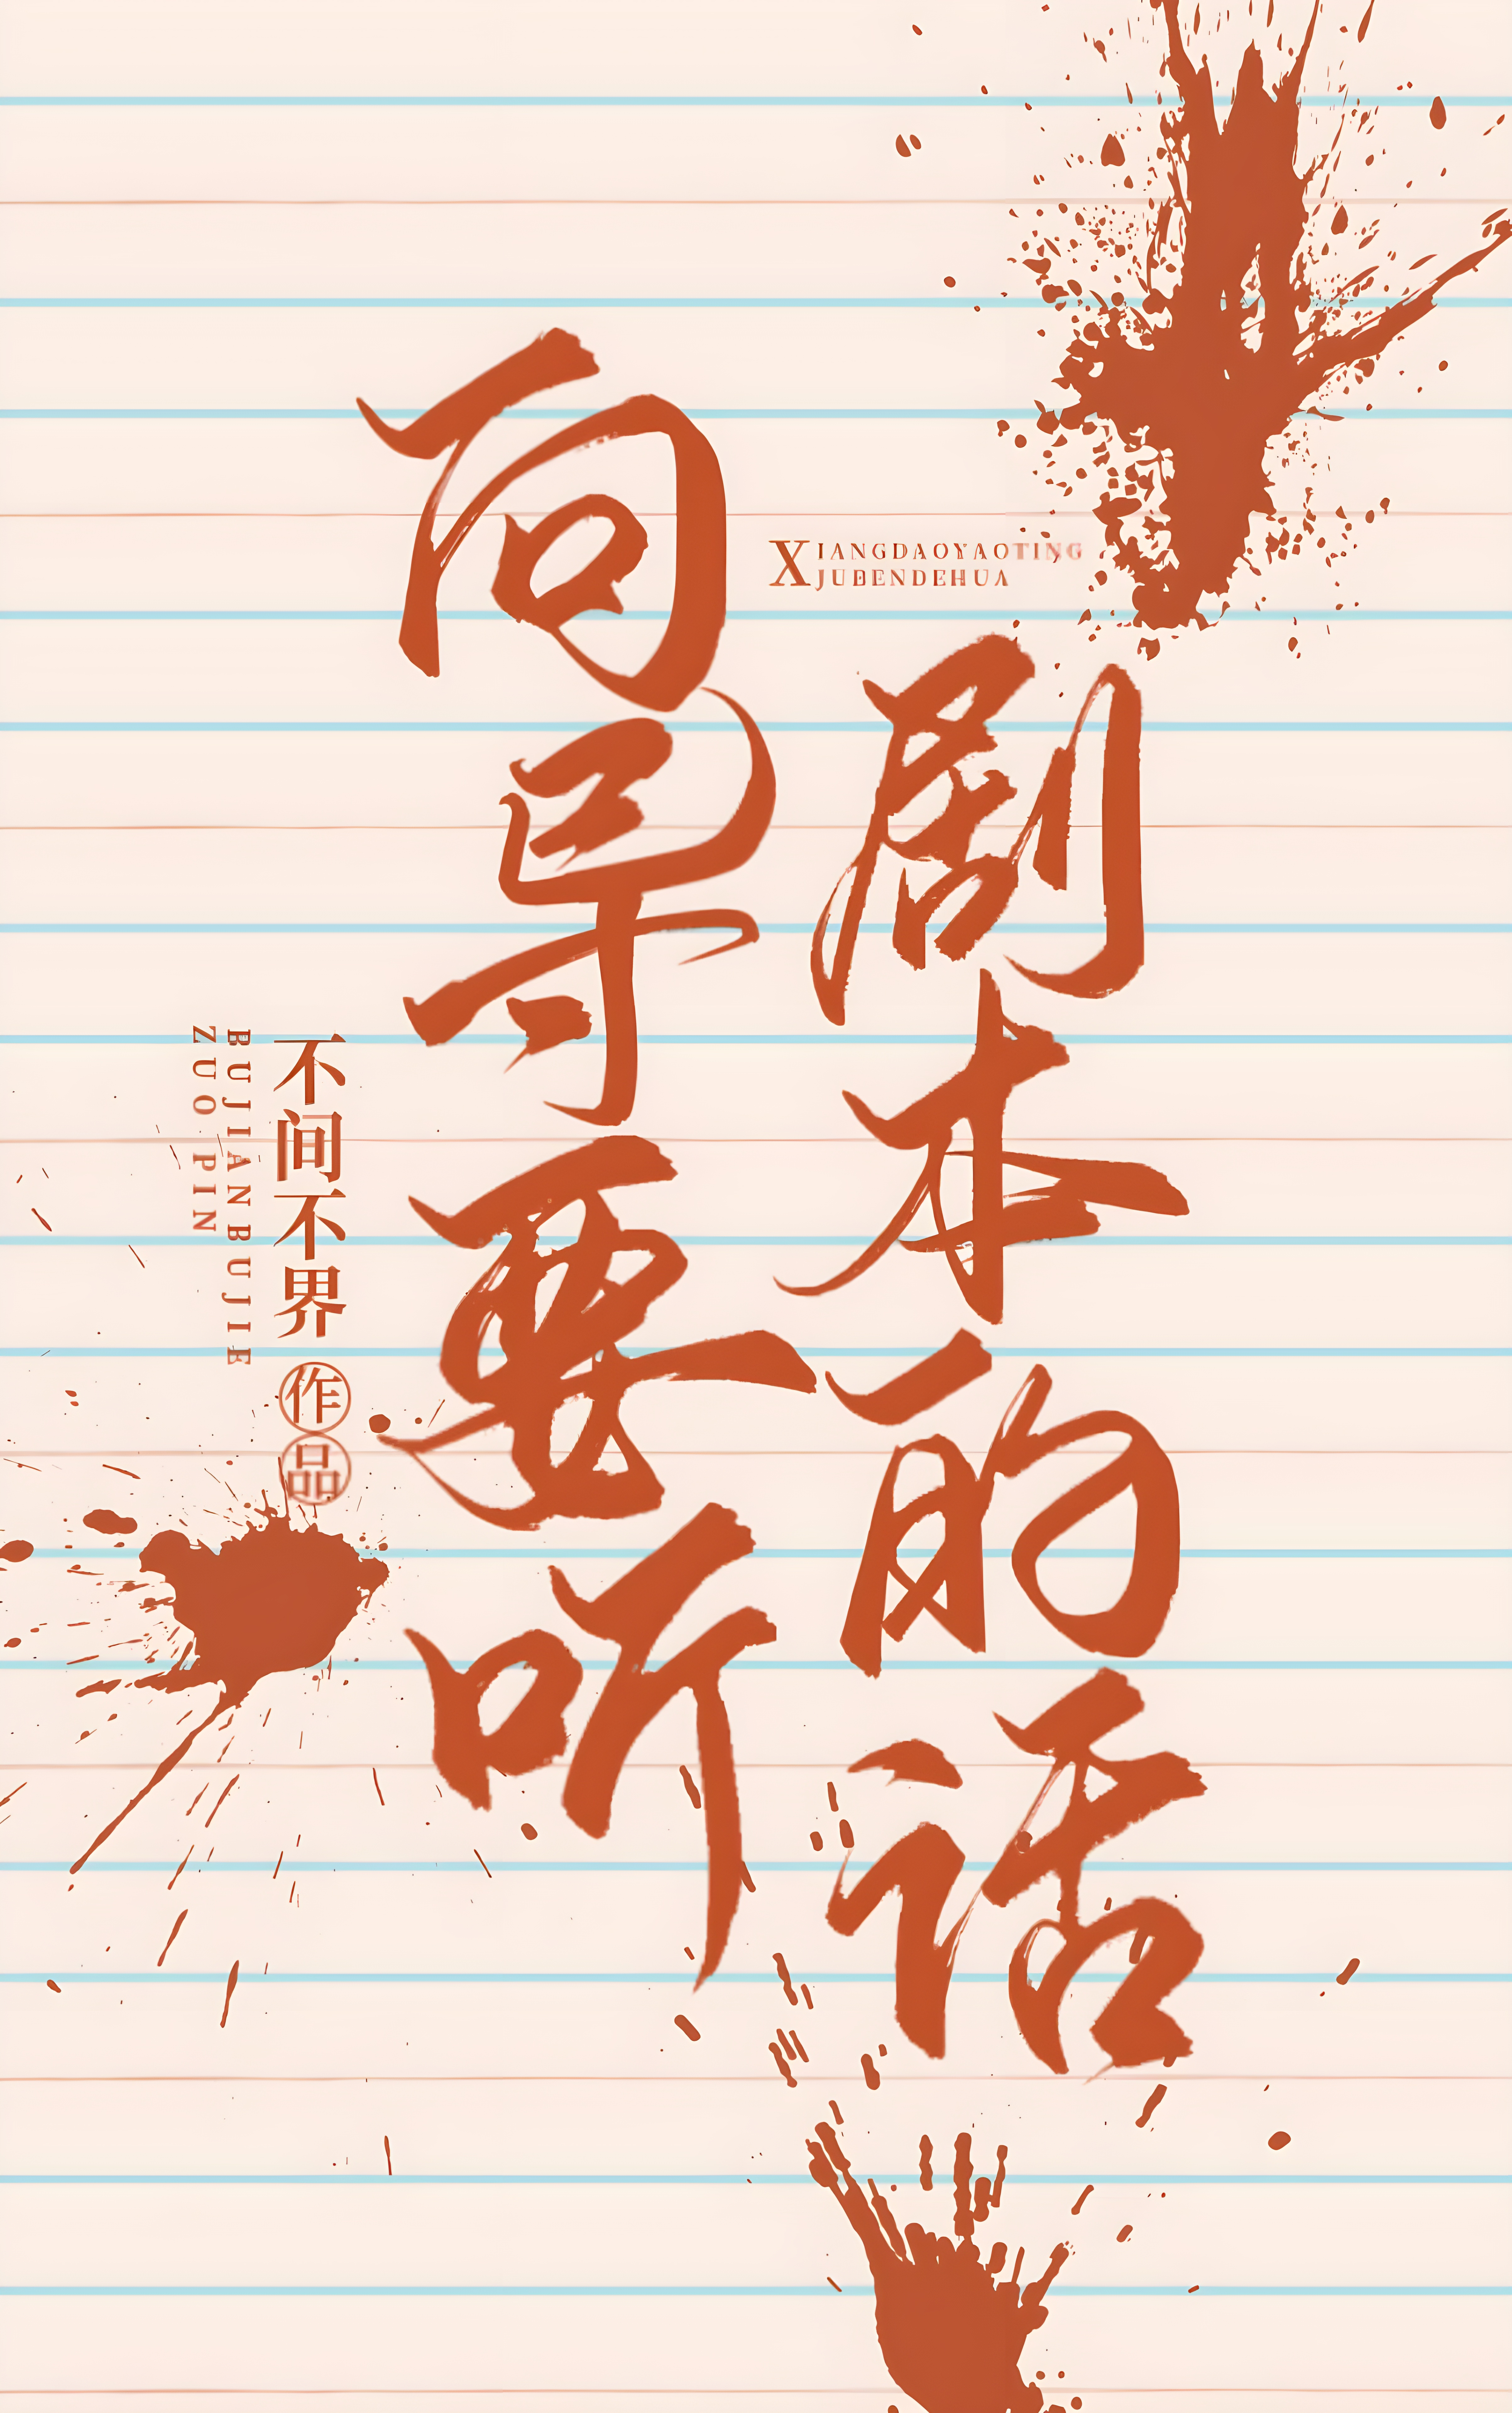 向导要听
剧本的话
XIANGDAOYAOTING
JUBENDEHUA
不间不界
作品
BUJIANBUJIE
ZUOPIN